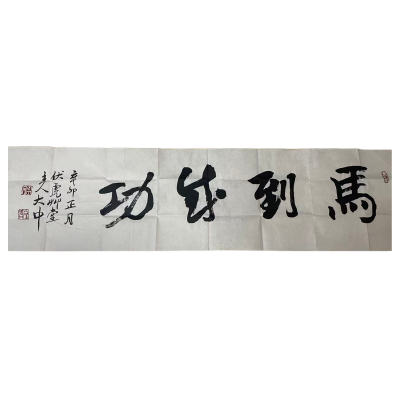 馬到成功
辛卯正月
伏虎草堂
主人大中